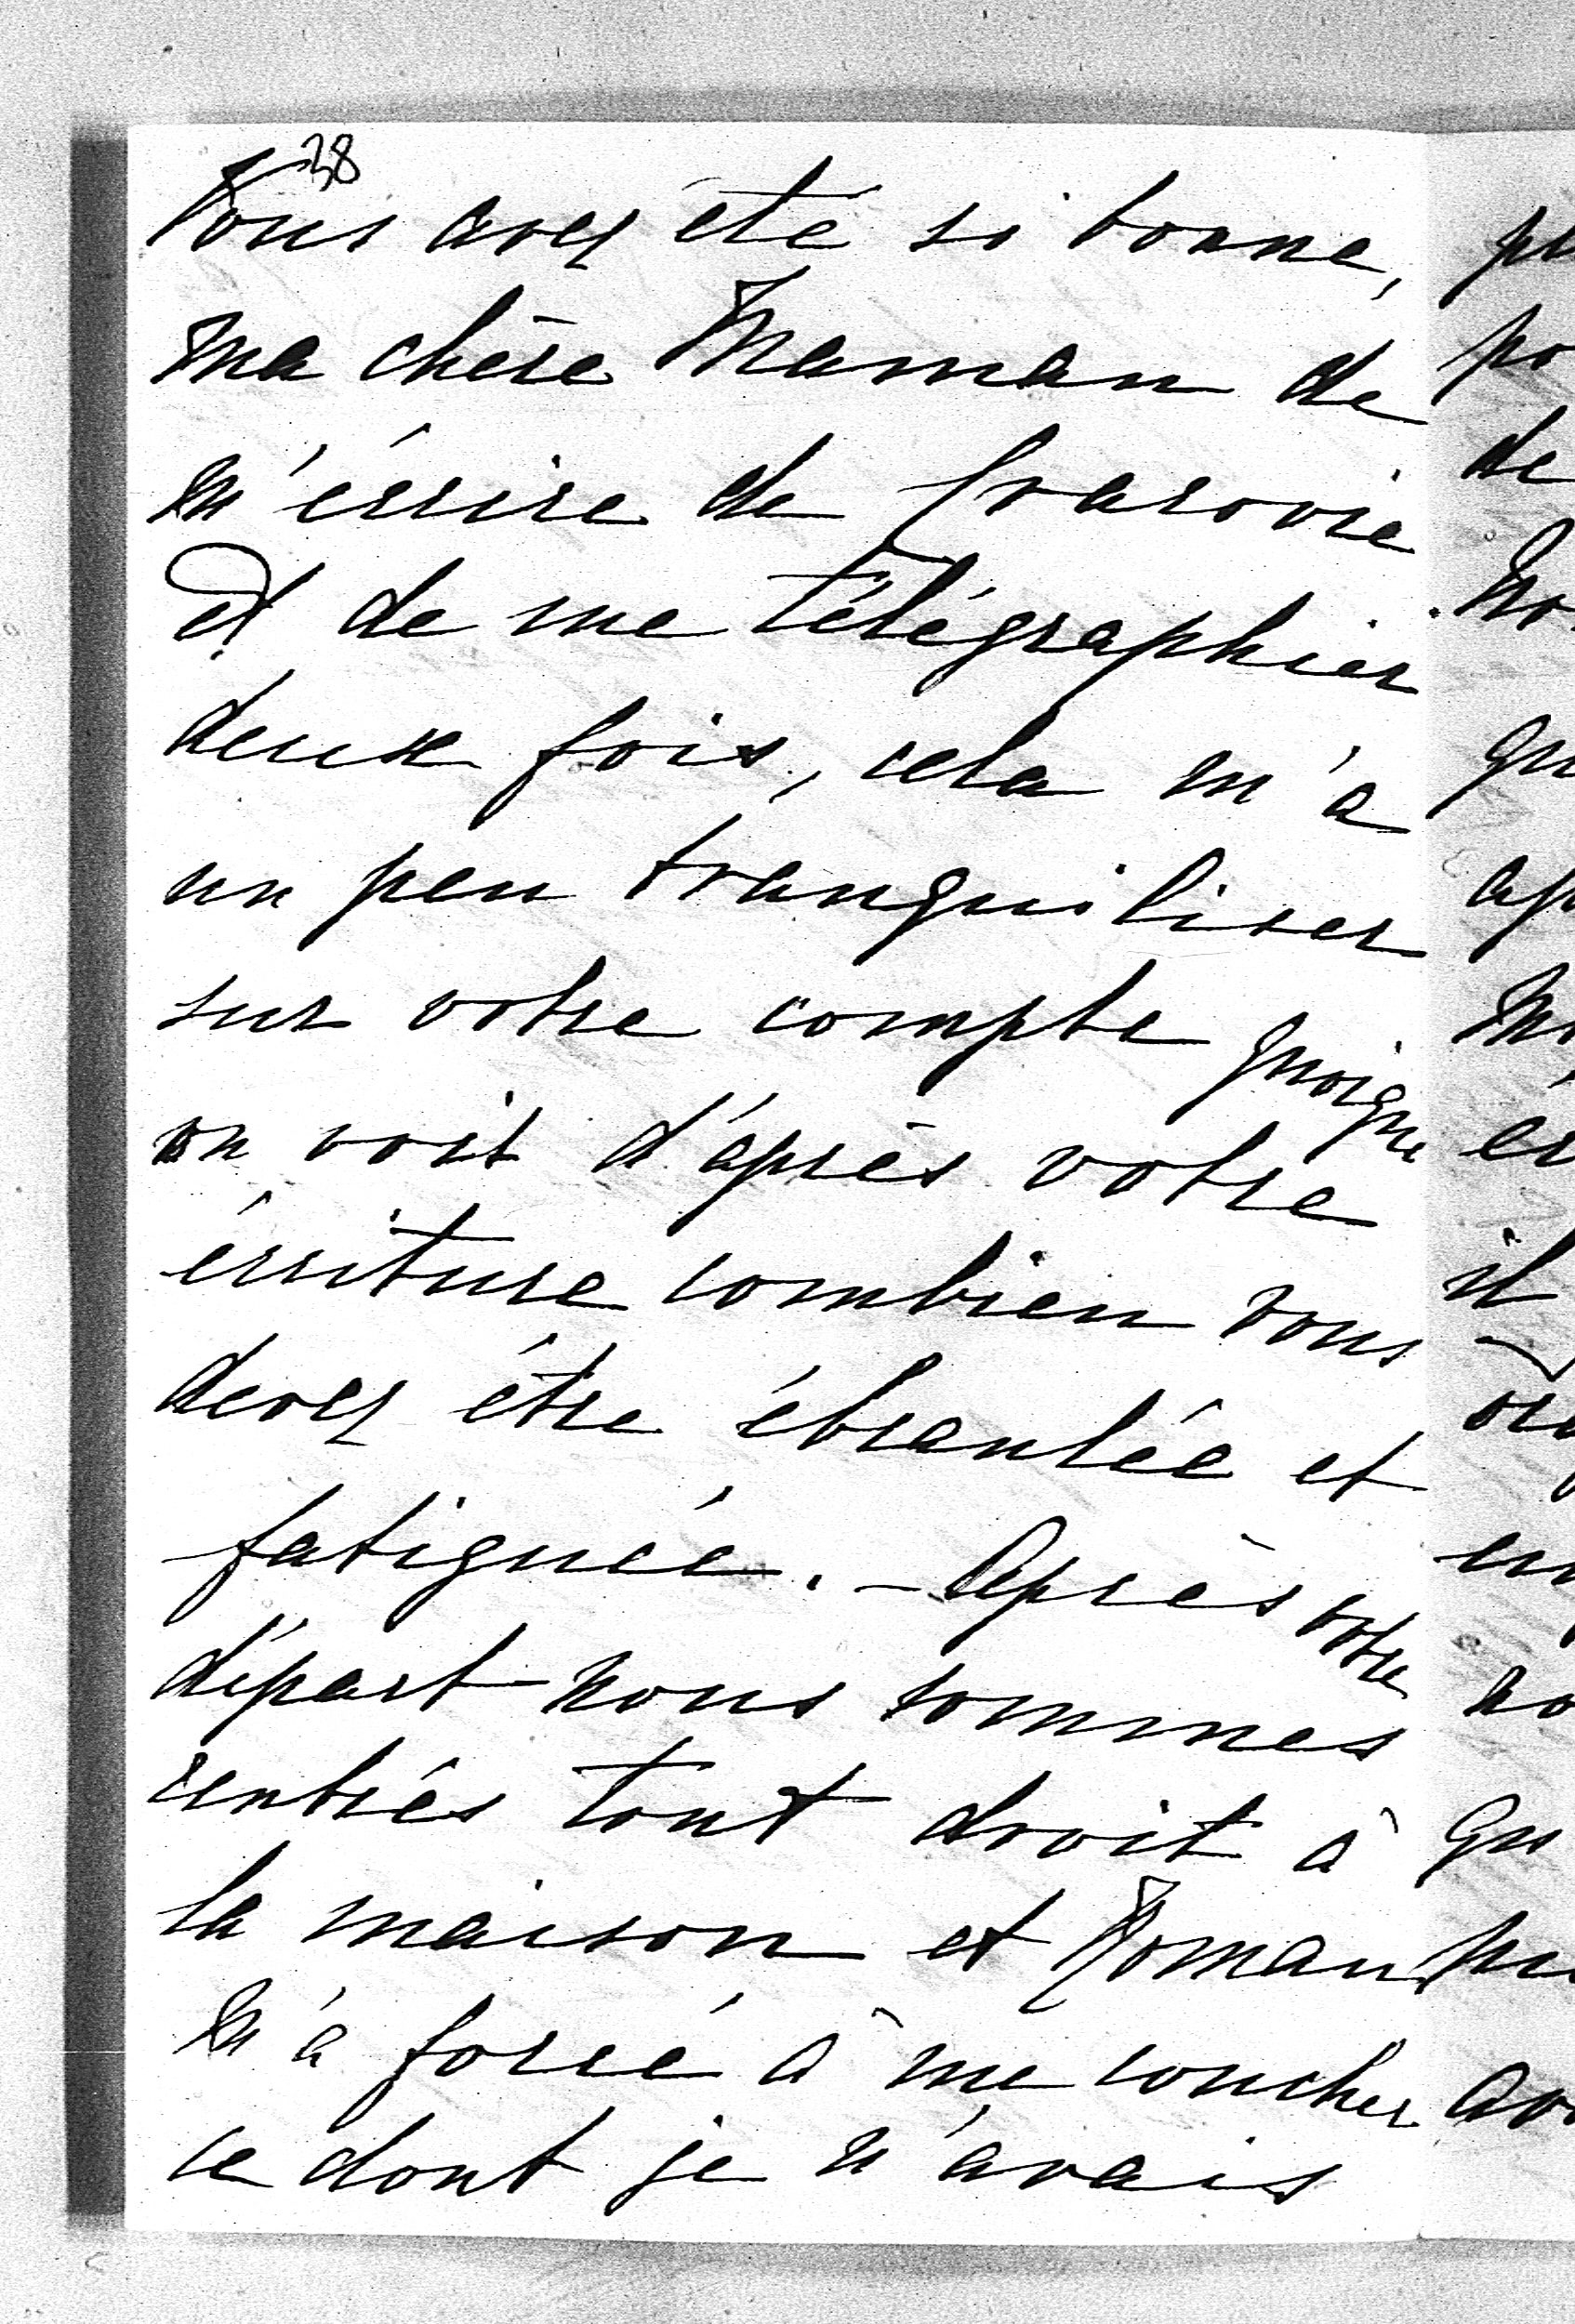 38
Vous avez été si bonne,
ma chère Maman de
m'écrire de Cracovie
et de me télégraphier
deux fois, cela m'a
un peu tranquiliser
sur votre compte quoique
on voit d'après votre
écriture combien vous
devez être ébranlée et
fatiguée. – Après votre
départ nous sommes
rentrés tout droit à
la maison et Roman
m'a forcé à me coucher
ce dont je n'avais